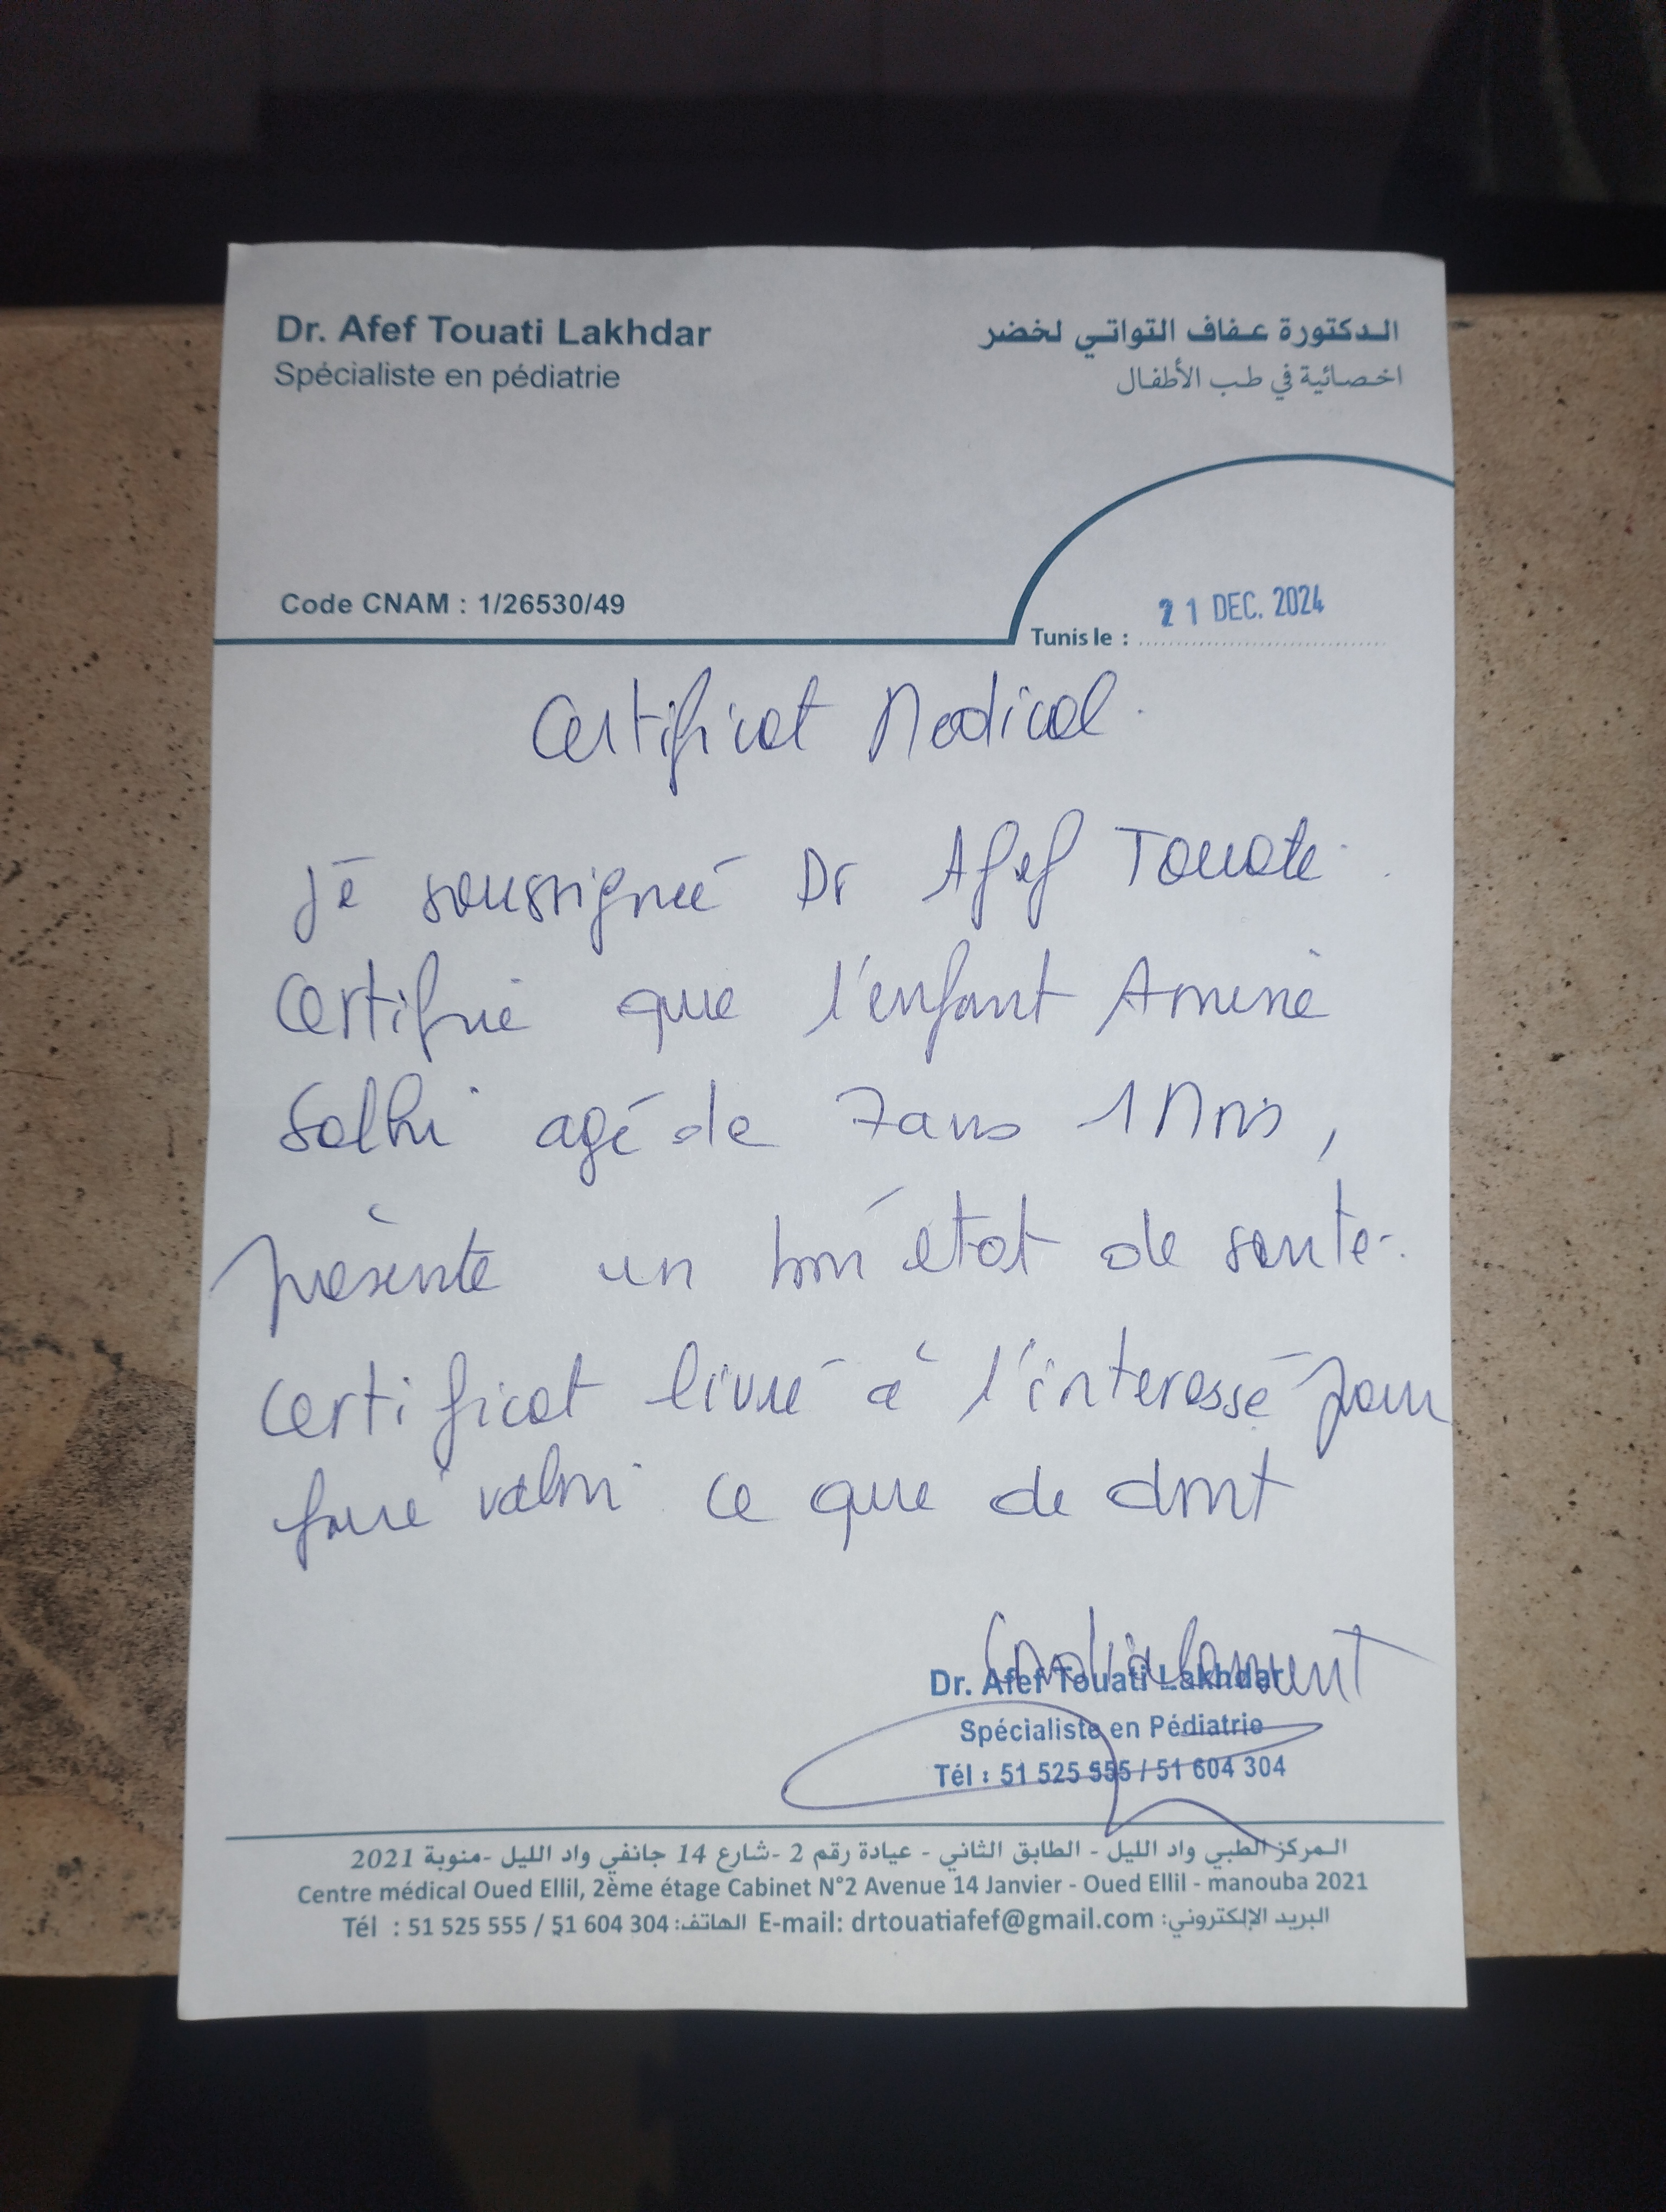 Dr. Afef Touati Lakhdar
الدكتورة عفاف التواتي لخضر
Spécialiste en pédiatrie
اخصائية في طب الأطفال
Code CNAM : 1/26530/49
21 DEC. 2024
Tunis le :
Certificat Medical.
Je soussigneé Dr Afef Touati
certifie que l'enfant Amine
Solhi agé de 7 ans 1 Mois,
présente un bon état de santé.
certificat livré à l'interessé pour
faire valoir ce que de droit
Cordialement
Dr. Afef Touati Lakhdar
Spécialiste en Pédiatrie
Tél : 51 525 555 / 51 604 304
المركز الطبي واد الليل - الطابق الثاني - عيادة رقم 2 -شارع 14 جانفي واد الليل -منوبة 2021
Centre médical Oued Ellil, 2ème étage Cabinet N°2 Avenue 14 Janvier - Oued Ellil - manouba 2021
Tél : 51 525 555 / 51 604 304 :الهاتف E-mail: drtouatiafef@gmail.com :البريد الإلكتروني